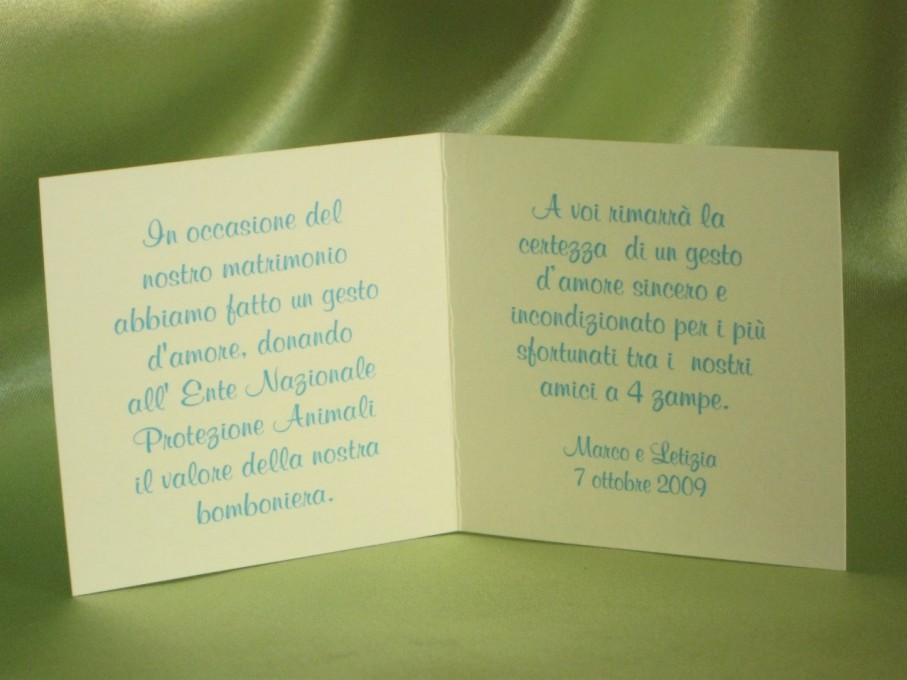 In occasione del
nostro matrimonio
abbiamo fatto un gesto
d'amore, donando
all' Ente Nazionale
Protezione Animali
il valore della nostra
bomboniera.
A voi rimarrà la
certezza di un gesto
d'amore sincero e
incondizionato per i più
sfortunati tra i nostri
amici a 4 zampe.
Marco e Letizia
7 ottobre 2009